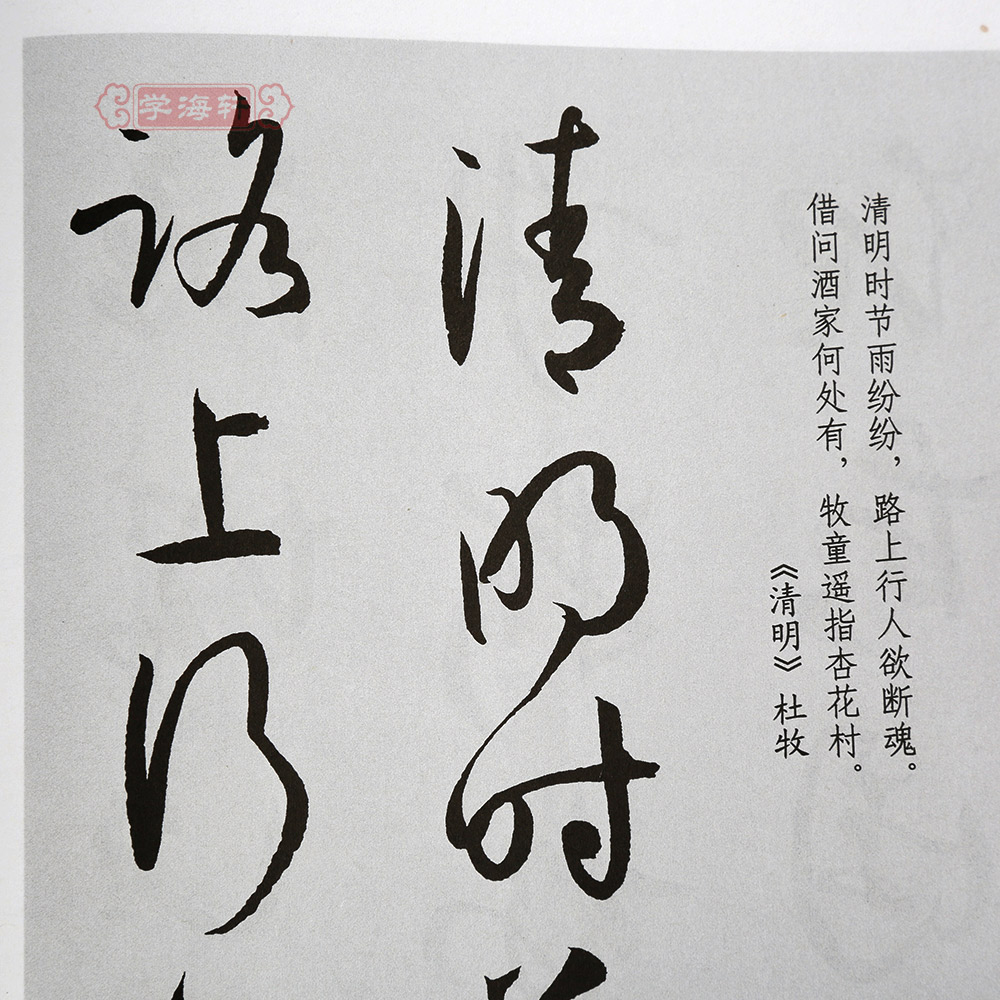 清明时节雨纷纷，路上行人欲断魂。
借问酒家何处有，牧童遥指杏花村。
《清明》 杜牧
清明时
路上行
学海轩